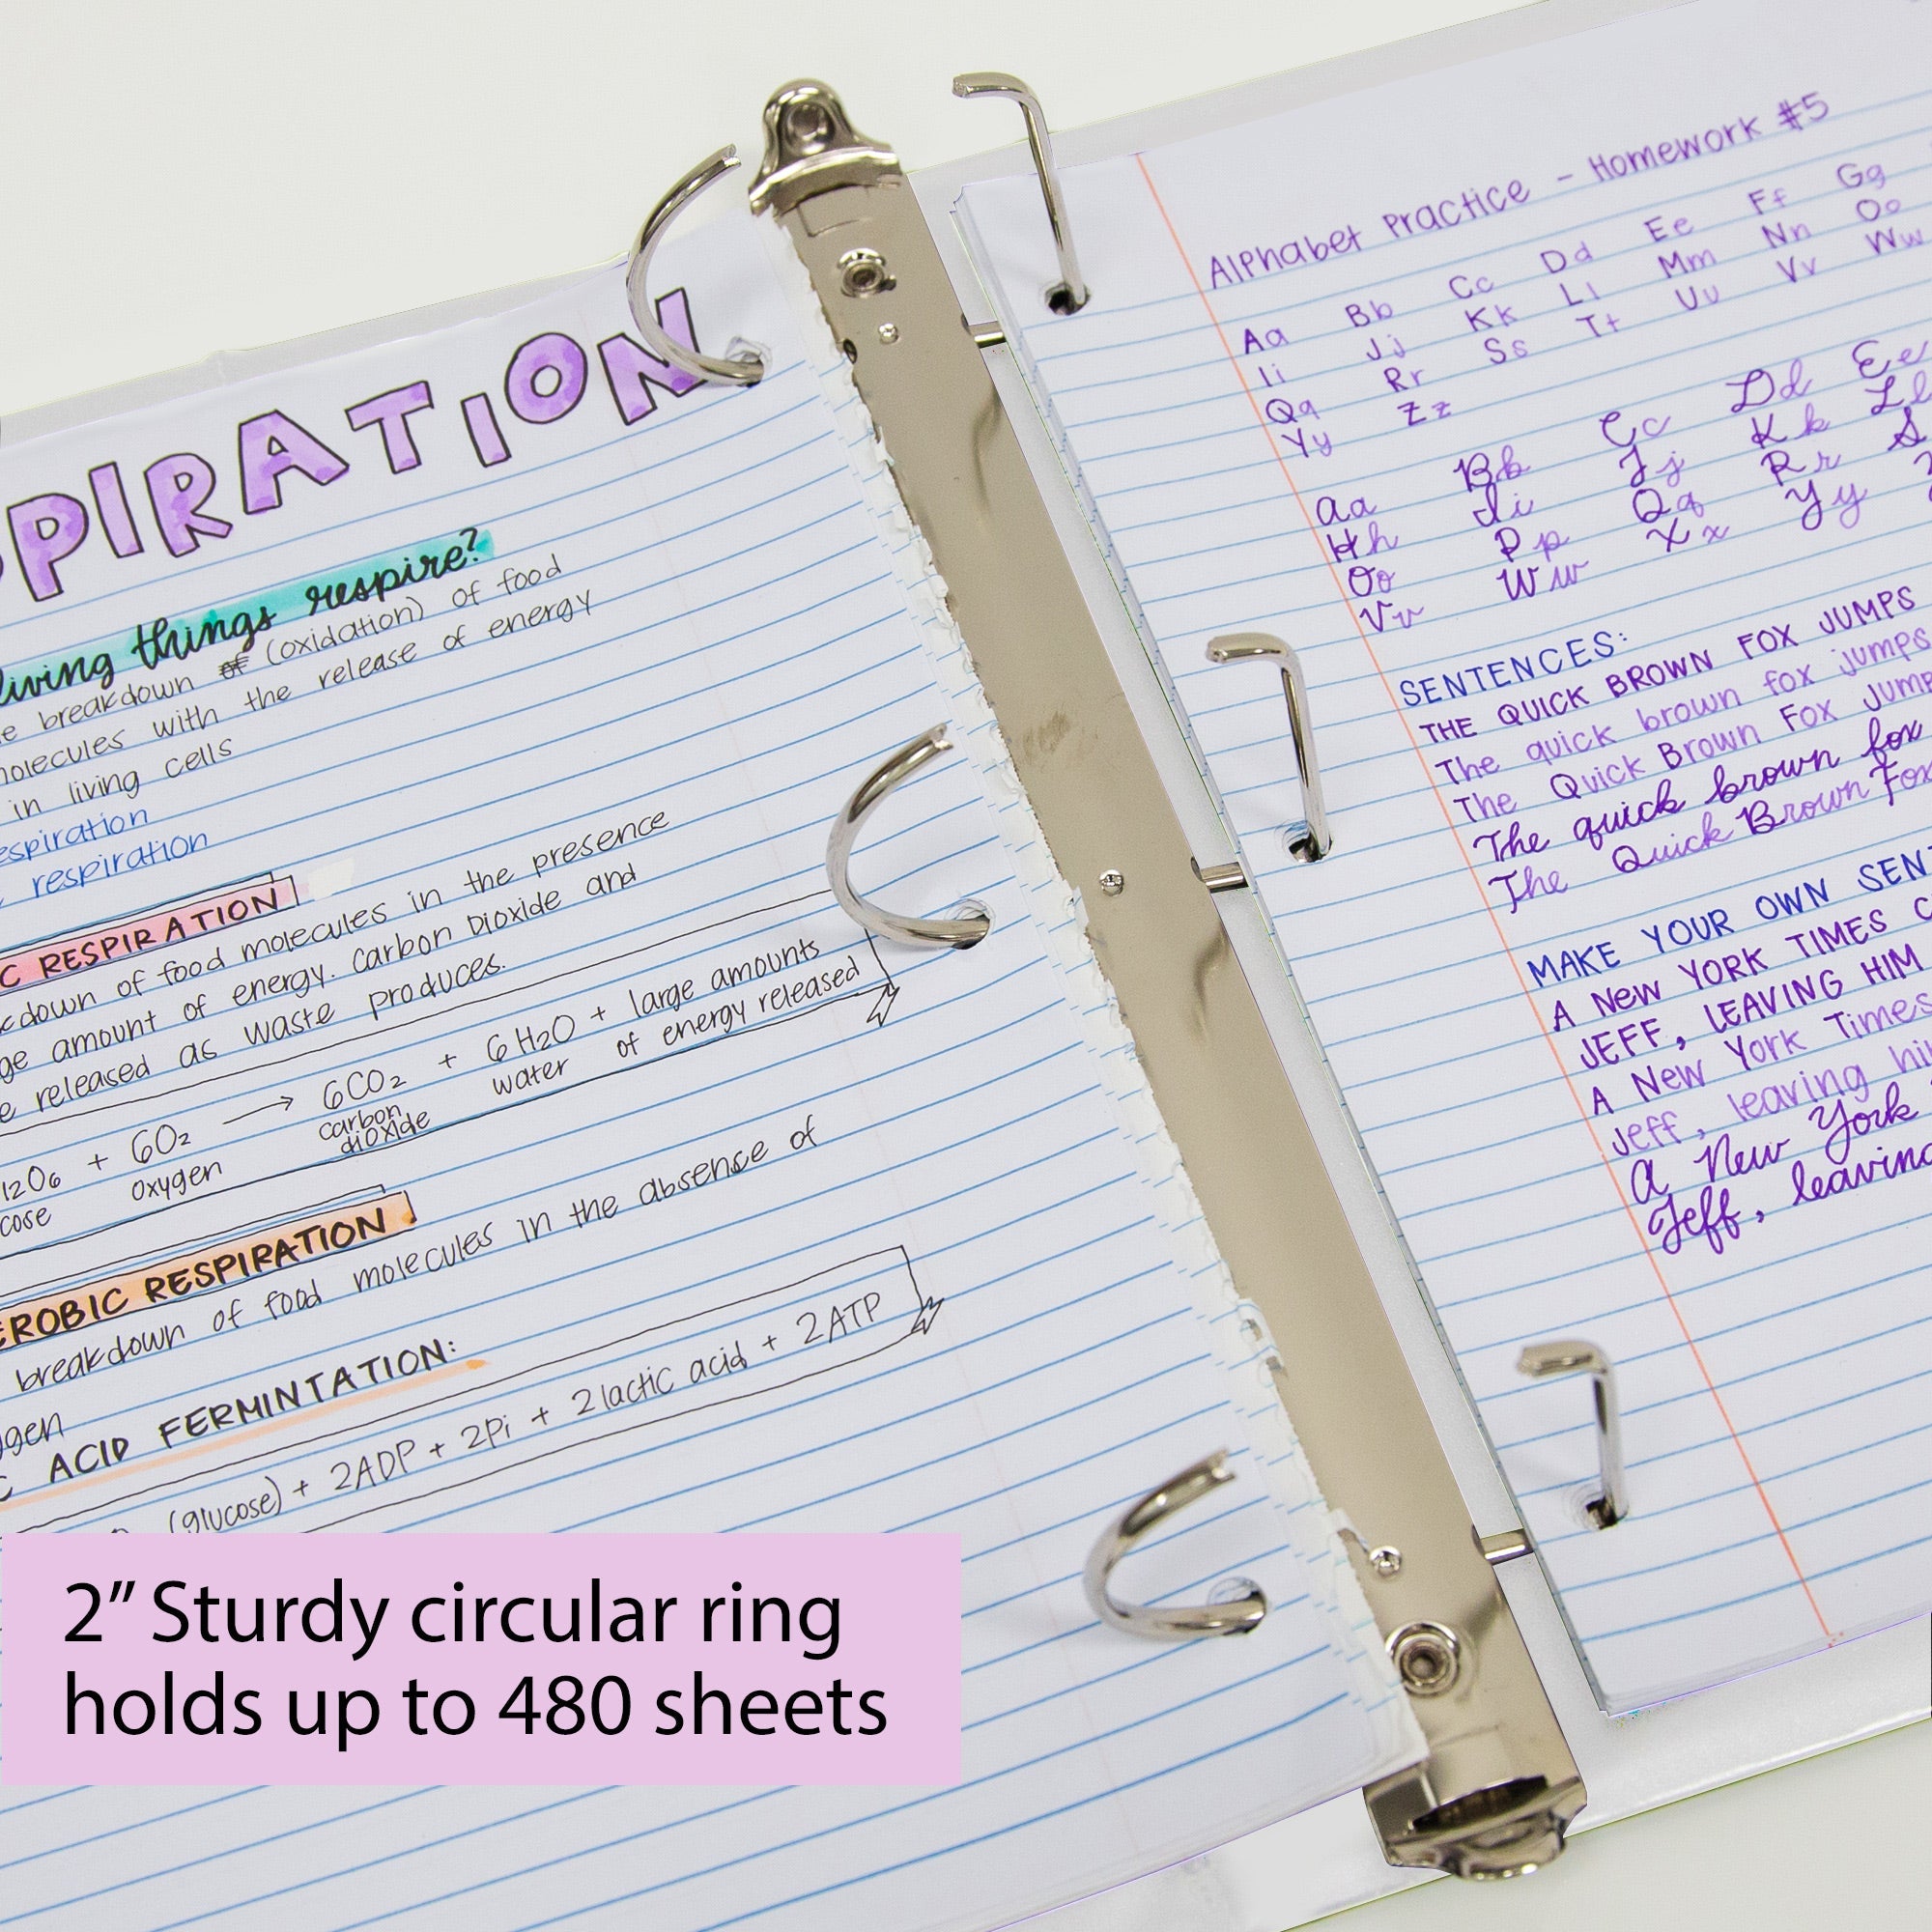 SPIRATION
living things respire?
breakdown of (oxidation) of food
molecules with the release of energy
in living cells
respiration
respiration
C RESPIRATION
kdown of food molecules in the presence
ge amount of energy. Carbon Dioxide and
e released as waste produces.
12O6 + 6O2 → 6CO2 + 6H2O + large amounts
cose oxygen carbon dioxide water of energy released
EROBIC RESPIRATION
breakdown of food molecules in the absence of
ygen
C ACID FERMINTATION:
(glucose) + 2ADP + 2Pi + 2 lactic acid + 2ATP
Alphabet Practice - Homework #5
Aa Bb Cc Dd Ee Ff Gg
Ii Jj Kk Ll Mm Nn Oo
Qq Rr Ss Tt Uu Vv Ww
Yy Zz
Aa Bb Cc Dd Ee
Hh Ii Jj Kk Ll
Oo Pp Qq Rr S
Vv Ww Xx Yy
SENTENCES:
THE QUICK BROWN FOX JUMPS
The quick brown fox jumps
The Quick Brown Fox Jump
The quick brown fox
The Quick Brown Fox
MAKE YOUR OWN SENT
A NEW YORK TIMES C
JEFF, LEAVING HIM
A New York Times
Jeff, leaving hi
A New York
Jeff, leaving
2” Sturdy circular ring
holds up to 480 sheets